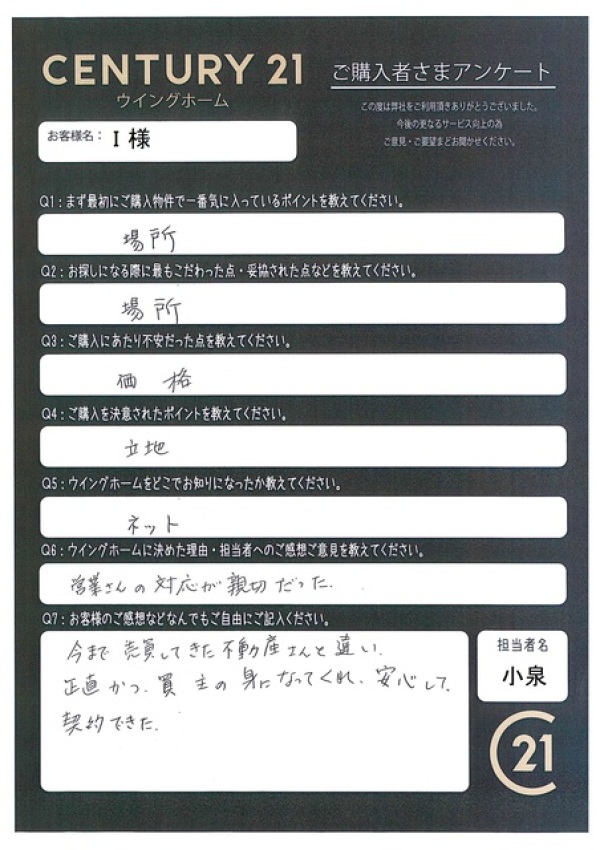 CENTURY 21
ウイングホーム
ご購入者さまアンケート
この度は弊社をご利用頂きありがとうございました。
今後の更なるサービス向上の為
ご意見・ご要望をお聞かせください。
お客様名： I 様
Q1：まず最初にご購入物件で一番気に入っているポイントを教えてください。
場所
Q2：お探しになる際に最もこだわった点・妥協された点などを教えてください。
場所
Q3：ご購入にあたり不安だった点を教えてください。
価格
Q4：ご購入を決意されたポイントを教えてください。
立地
Q5：ウイングホームをどこでお知りになったか教えてください。
ネット
Q6：ウイングホームに決めた理由・担当者へのご感想ご意見を教えてください。
営業さんの対応が親切だった.
Q7：お客様のご感想などなんでもご自由にご記入ください。
今まで売買してきた不動産さんと違い.
正直かつ、買主の身になってくれ、安心して、
契約できた.
担当者名
小泉
21